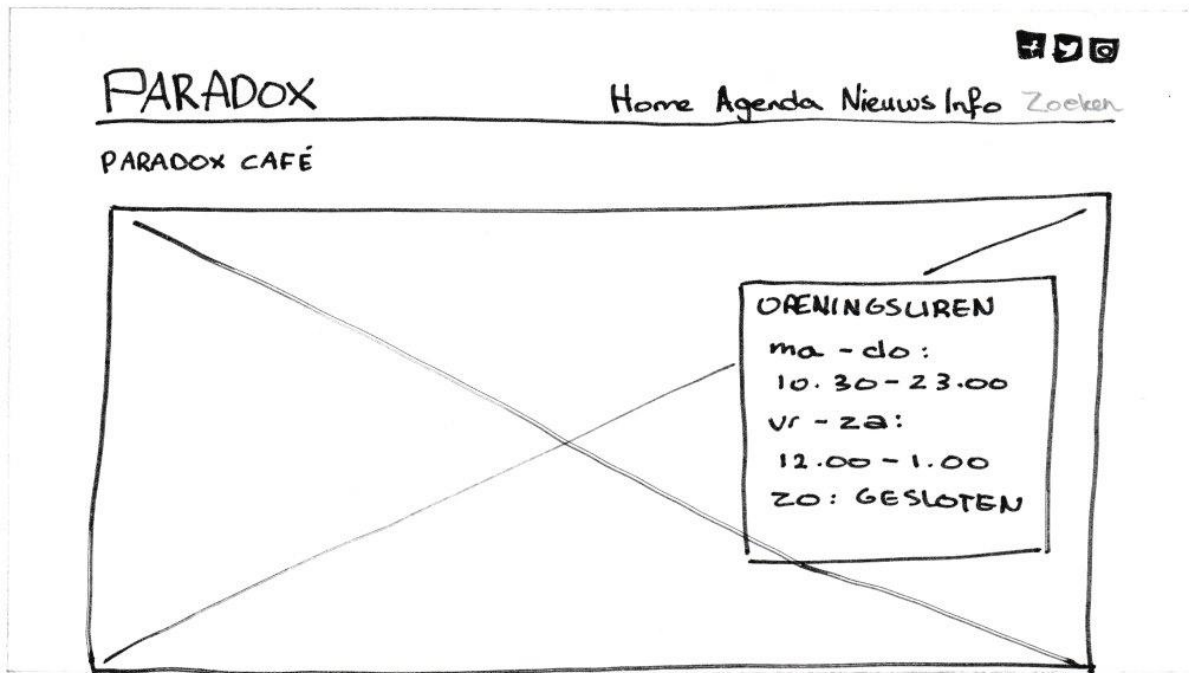 PARADOX
Home Agenda Nieuws Info Zoeken
PARADOX CAFÉ
OPENINGSUREN
ma - do:
10.30 - 23.00
vr - za:
12.00 - 1.00
ZO: GESLOTEN